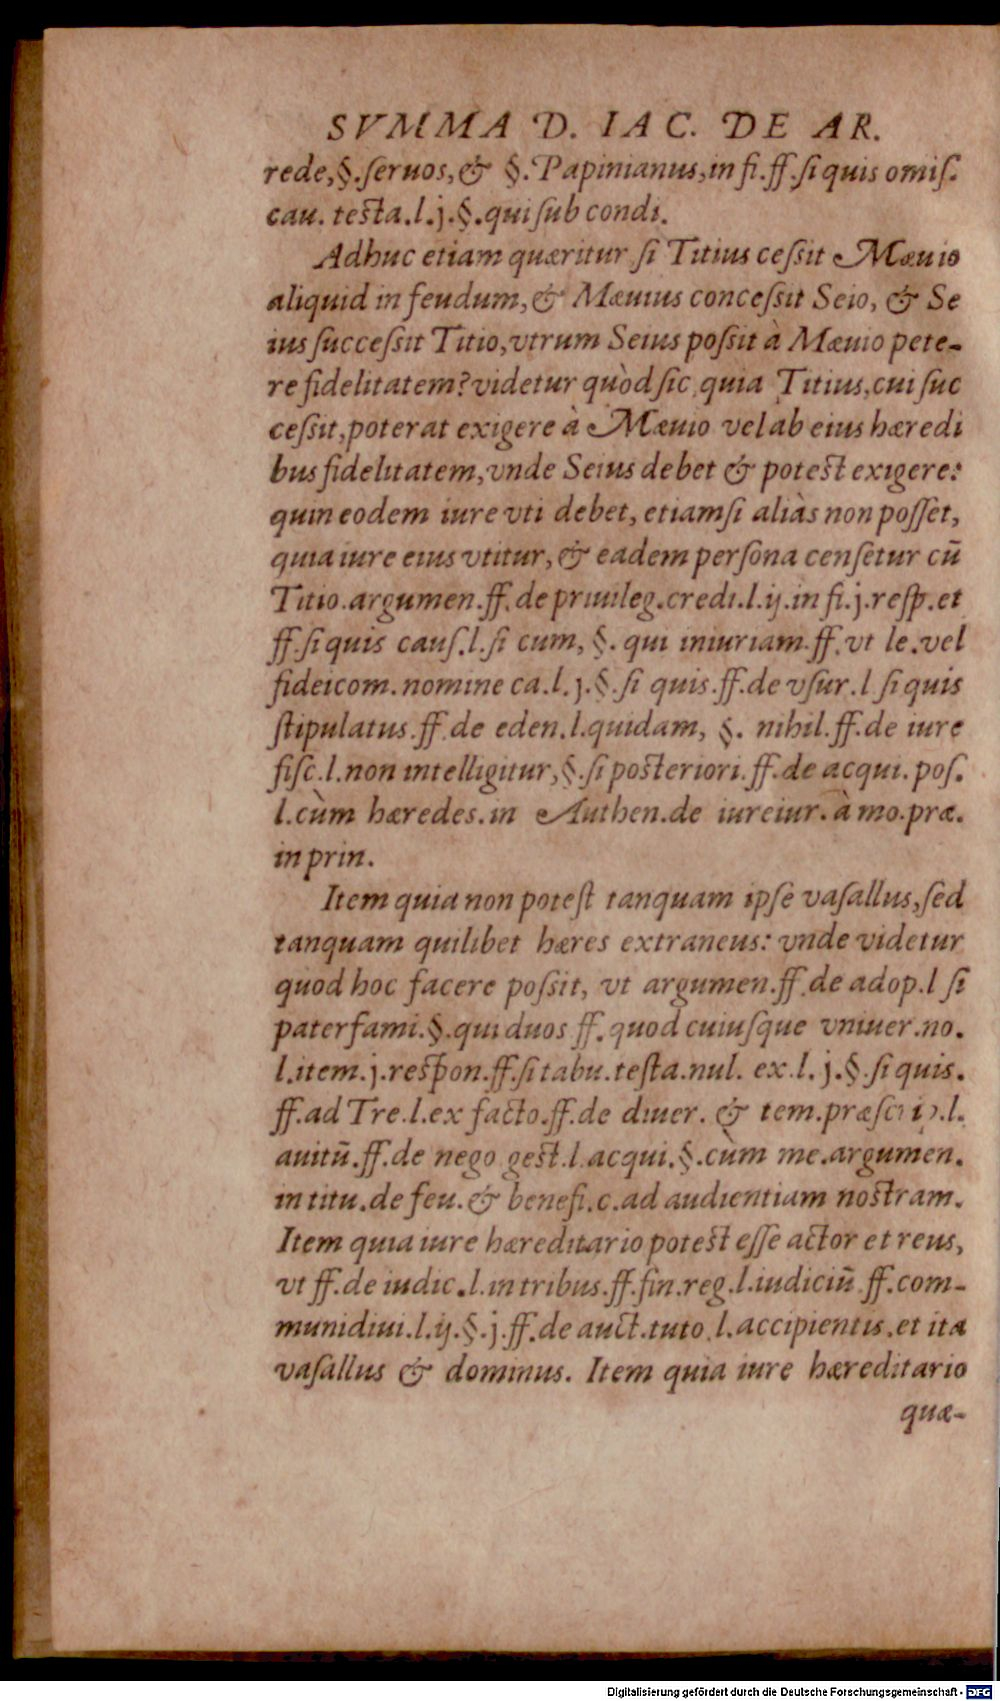 SVMMA D. IAC. DE AR.
rede,§.ſeruos,& §.Papinianus,in fi.ff.ſi quis omiſ.
cau. teſta.l.j.§.qui ſub condi.
Adhuc etiam quæritur ſi Titius ceſſit Mæuio
aliquid in feudum,& Mæuius conceſſit Seio, & Se
ius ſucceſſit Titio,vtrum Seius poſſit à Mæuio pete-
re fidelitatem?videtur quòd ſic quia Titius,cui ſuc
ceſſit,poterat exigere à Mæuio vel ab eius hæredi
bus fidelitatem,vnde Seius debet & poteſt exigere:
quin eodem iure vti debet, etiamſi aliàs non poſſet,
quia iure eius vtitur, & eadem perſona cenſetur cū
Titio.argumen.ff.de priuileg.credi.l.ij.in fi.j.reſp.et
ff.ſi quis cauſ.l.ſi cum, §. qui iniuriam.ff.vt le.vel
fideicom.nomine ca.l.j.§.ſi quis.ff.de vſur.l ſi quis
ſtipulatus.ff.de eden.l.quidam, §. nihil.ff.de iure
fiſc.l.non intelligitur,§.ſi poſteriori.ff.de acqui.poſ.
l.cùm hæredes.in Authen.de iureiur.à mo.præ.
in prin.
Item quia non poteſt tanquam ipſe vaſallus,ſed
tanquam quilibet hæres extraneus: vnde videtur
quod hoc facere poſſit, vt argumen.ff.de adop.l ſi
paterfami.§.qui duos ff.quod cuiuſque vniuer.no.
l.item.j.reſpon.ff.ſi tabu.teſta.nul. ex.l.j.§.ſi quis.
ff.ad Tre.l.ex facto.ff.de diuer. & tem.præſcrip.l.
auitū.ff.de nego geſt.l.acqui.§.cùm me.argumen.
in titu.de feu.& benefi.c.ad audientiam noſtram.
Item quia iure hæreditario poteſt eſſe actor et reus,
vt ff.de iudic.l.in tribus.ff.fin.reg.l.iudiciū.ff.com-
munidiui.l.ij.§.j.ff.de auct.tuto.l.accipientis.et ita
vaſallus & dominus. Item quia iure hæreditario
quæ-
Digitalisierung gefördert durch die Deutsche Forschungsgemeinschaft - DFG